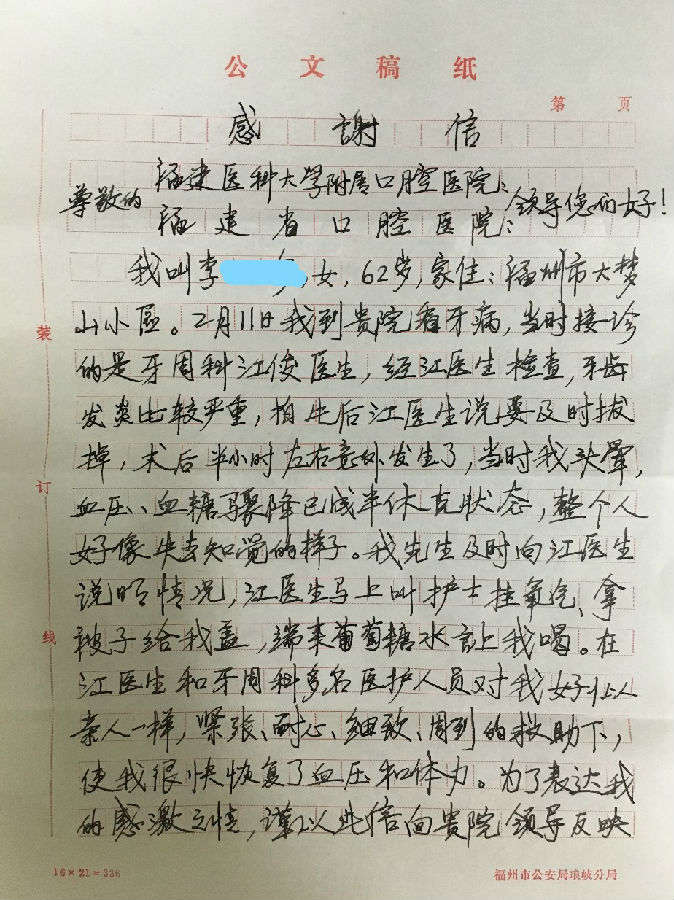 公文稿纸
第 页
感謝信
福建医科大学附属口腔医院:
尊敬的 领导您们好!
福建省口腔医院:
我叫李 女,62岁,家住:福州市大梦
山小區。2月11日我到贵院看牙病,当时接诊
的是牙周科江俊医生,经江医生检查,牙齿
发炎比较严重,拍片后江医生说要及时拔
掉,术后半小时左右意外发生了,当时我头暈,
血压、血糖骤降已成半休克狀态,整个人
好像失去知觉的样子。我先生及时向江医生
说明情况,江医生马上叫护士挂氧汽、拿
被子给我盖,端来葡萄糖水让我喝。在
江医生和牙周科多名医护人员对我好比人
亲人一样,紧张、耐心、细致、周到的救助下,
使我很快恢复了血压和体力。为了表达我
的感激之情,谨以此信向贵院领导反映
装
订
线
16×21=336
福州市公安局琅岐分局